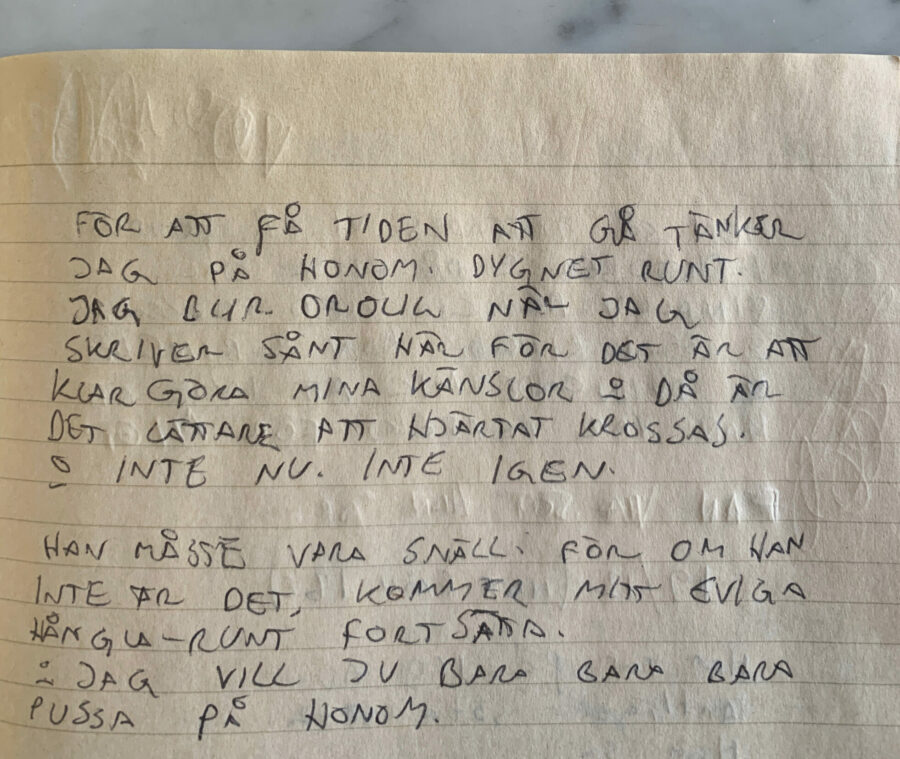 FÖR ATT FÅ TIDEN ATT GÅ TÄNKER
JAG PÅ HONOM. DYGNET RUNT.
JAG BLIR OROLIG NÄR JAG
SKRIVER SÅNT HÄR FÖR DET ÄR ATT
KLARGÖRA MINA KÄNSLOR o DÅ ÄR
DET LÄTTARE ATT HJÄRTAT KROSSAS.
o INTE NU. INTE IGEN.
HAN MÅSSE VARA SNÄLL. FÖR OM HAN
INTE ÄR DET, KOMMER MITT EVIGA
HÅNGLA-RUNT FORTSÄTTA.
o JAG VILL JU BARA BARA BARA
PUSSA PÅ HONOM.